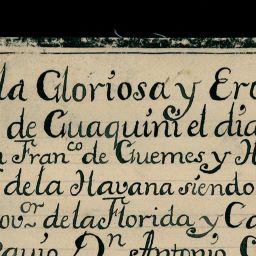 la Gloriosa y Ero
de Guaquini el dia
n Fran.co de Guemes y H
dela Havana siendo
ov.or dela Florida y Ca
quio Dn Antonio